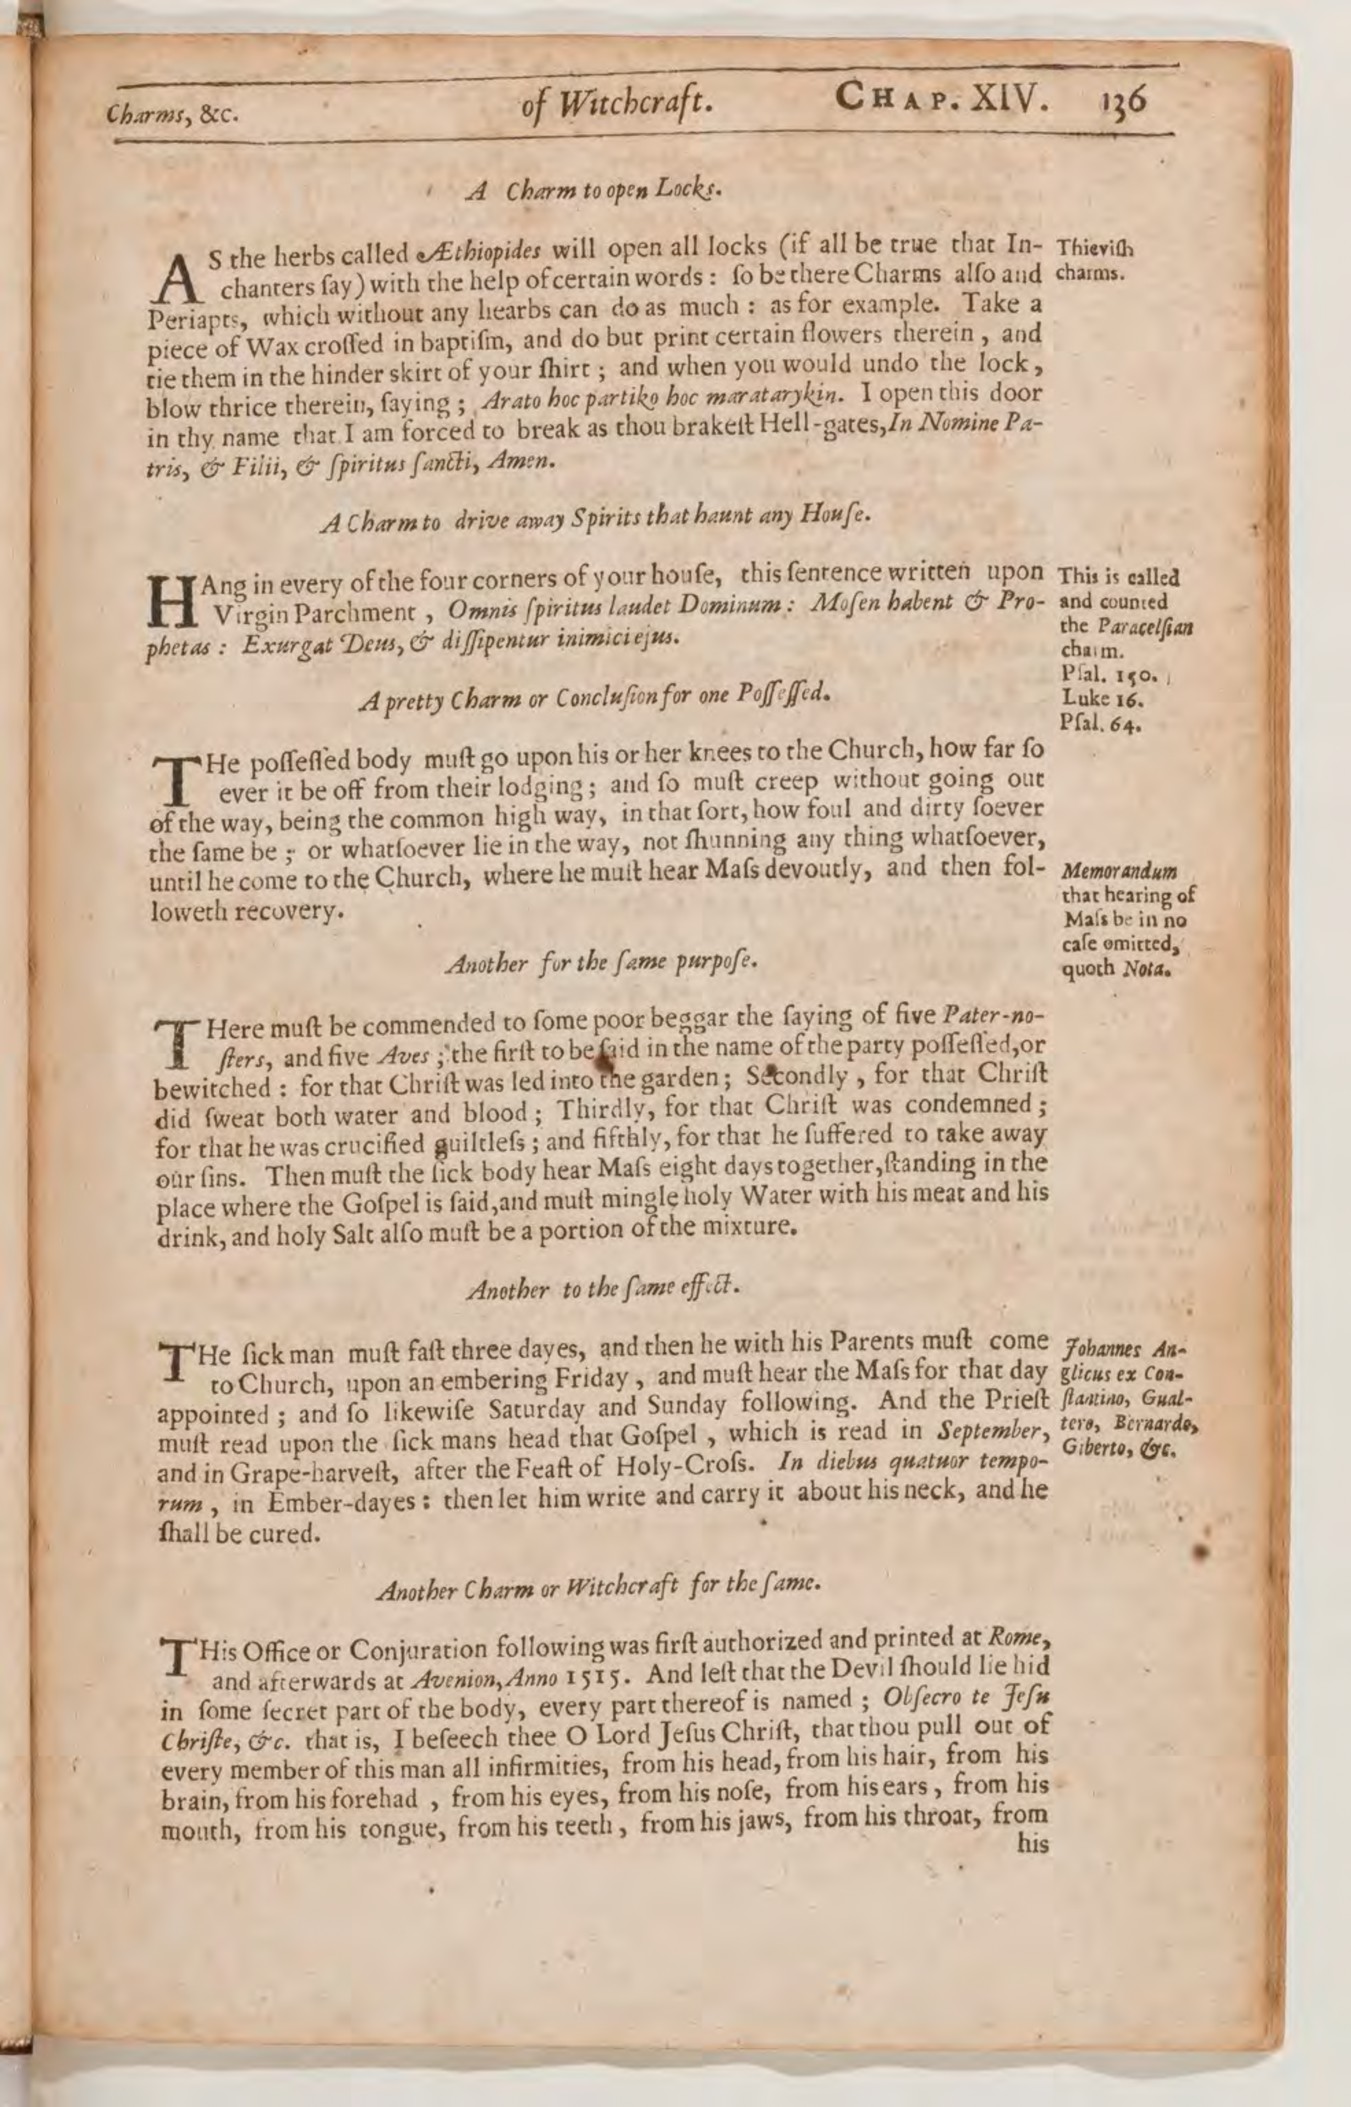 Charms, &c.
of Witchcraft.
CHAP. XIV. 136
A Charm to open Locks.
AS the herbs called Æthiopides will open all locks (if all be true that In-
chanters ſay) with the help of certain words : ſo be there Charms alſo and
Periapts, which without any hearbs can do as much : as for example. Take a
piece of Wax croſſed in baptiſm, and do but print certain flowers therein , and
tie them in the hinder skirt of your ſhirt ; and when you would undo the lock ,
blow thrice therein, ſaying ; Arato hoc partiko hoc maratarykin. I open this door
in thy name that I am forced to break as thou brakeſt Hell-gates, In Nomine Pa-
tris, & Filii, & ſpiritus ſancti, Amen.
Thieviſh
charms.
A Charm to drive away Spirits that haunt any Houſe.
HAng in every of the four corners of your houſe, this ſentence written upon
Virgin Parchment , Omnis ſpiritus laudet Dominum : Moſen habent & Pro-
phetas : Exurgat Deus, & diſſipentur inimici ejus.
This is called
and counted
the Paracelſian
charm.
Pſal. 150.
Luke 16.
Pſal. 64.
A pretty Charm or Concluſion for one Poſſeſſed.
THe poſſeſſed body muſt go upon his or her knees to the Church, how far ſo
ever it be off from their lodging ; and ſo muſt creep without going out
of the way, being the common high way, in that ſort, how foul and dirty ſoever
the ſame be ; or whatſoever lie in the way, not ſhunning any thing whatſoever,
until he come to the Church, where he muſt hear Maſs devoutly, and then fol-
loweth recovery.
Memorandum
that hearing of
Maſs be in no
caſe omitted,
quoth Nota.
Another for the ſame purpoſe.
THere muſt be commended to ſome poor beggar the ſaying of five Pater-no-
ſters, and five Aves ; the firſt to be ſaid in the name of the party poſſeſſed, or
bewitched : for that Chriſt was led into the garden ; Secondly , for that Chriſt
did ſweat both water and blood ; Thirdly, for that Chriſt was condemned ;
for that he was crucified guiltleſs ; and fifthly, for that he ſuffered to take away
our ſins. Then muſt the ſick body hear Maſs eight days together, ſtanding in the
place where the Goſpel is ſaid, and muſt mingle holy Water with his meat and his
drink, and holy Salt alſo muſt be a portion of the mixture.
Another to the ſame effect.
THe ſick man muſt faſt three dayes, and then he with his Parents muſt come
to Church, upon an embering Friday , and muſt hear the Maſs for that day
appointed ; and ſo likewiſe Saturday and Sunday following. And the Prieſt
muſt read upon the ſick mans head that Goſpel , which is read in September,
and in Grape-harveſt, after the Feaſt of Holy-Croſs. In diebus quatuor tempo-
rum , in Ember-dayes : then let him write and carry it about his neck, and he
ſhall be cured.
Johannes An-
glicus ex Con-
ſtantino, Gual-
tero, Bernardo,
Giberto, &c.
Another Charm or Witchcraft for the ſame.
THis Office or Conjuration following was firſt authorized and printed at Rome,
and afterwards at Avenion, Anno 1515. And leſt that the Devil ſhould lie hid
in ſome ſecret part of the body, every part thereof is named ; Obſecro te Jeſu
Chriſte, &c. that is, I beſeech thee O Lord Jeſus Chriſt, that thou pull out of
every member of this man all infirmities, from his head, from his hair, from his
brain, from his forehad , from his eyes, from his noſe, from his ears , from his
mouth, from his tongue, from his teeth , from his jaws, from his throat, from
his